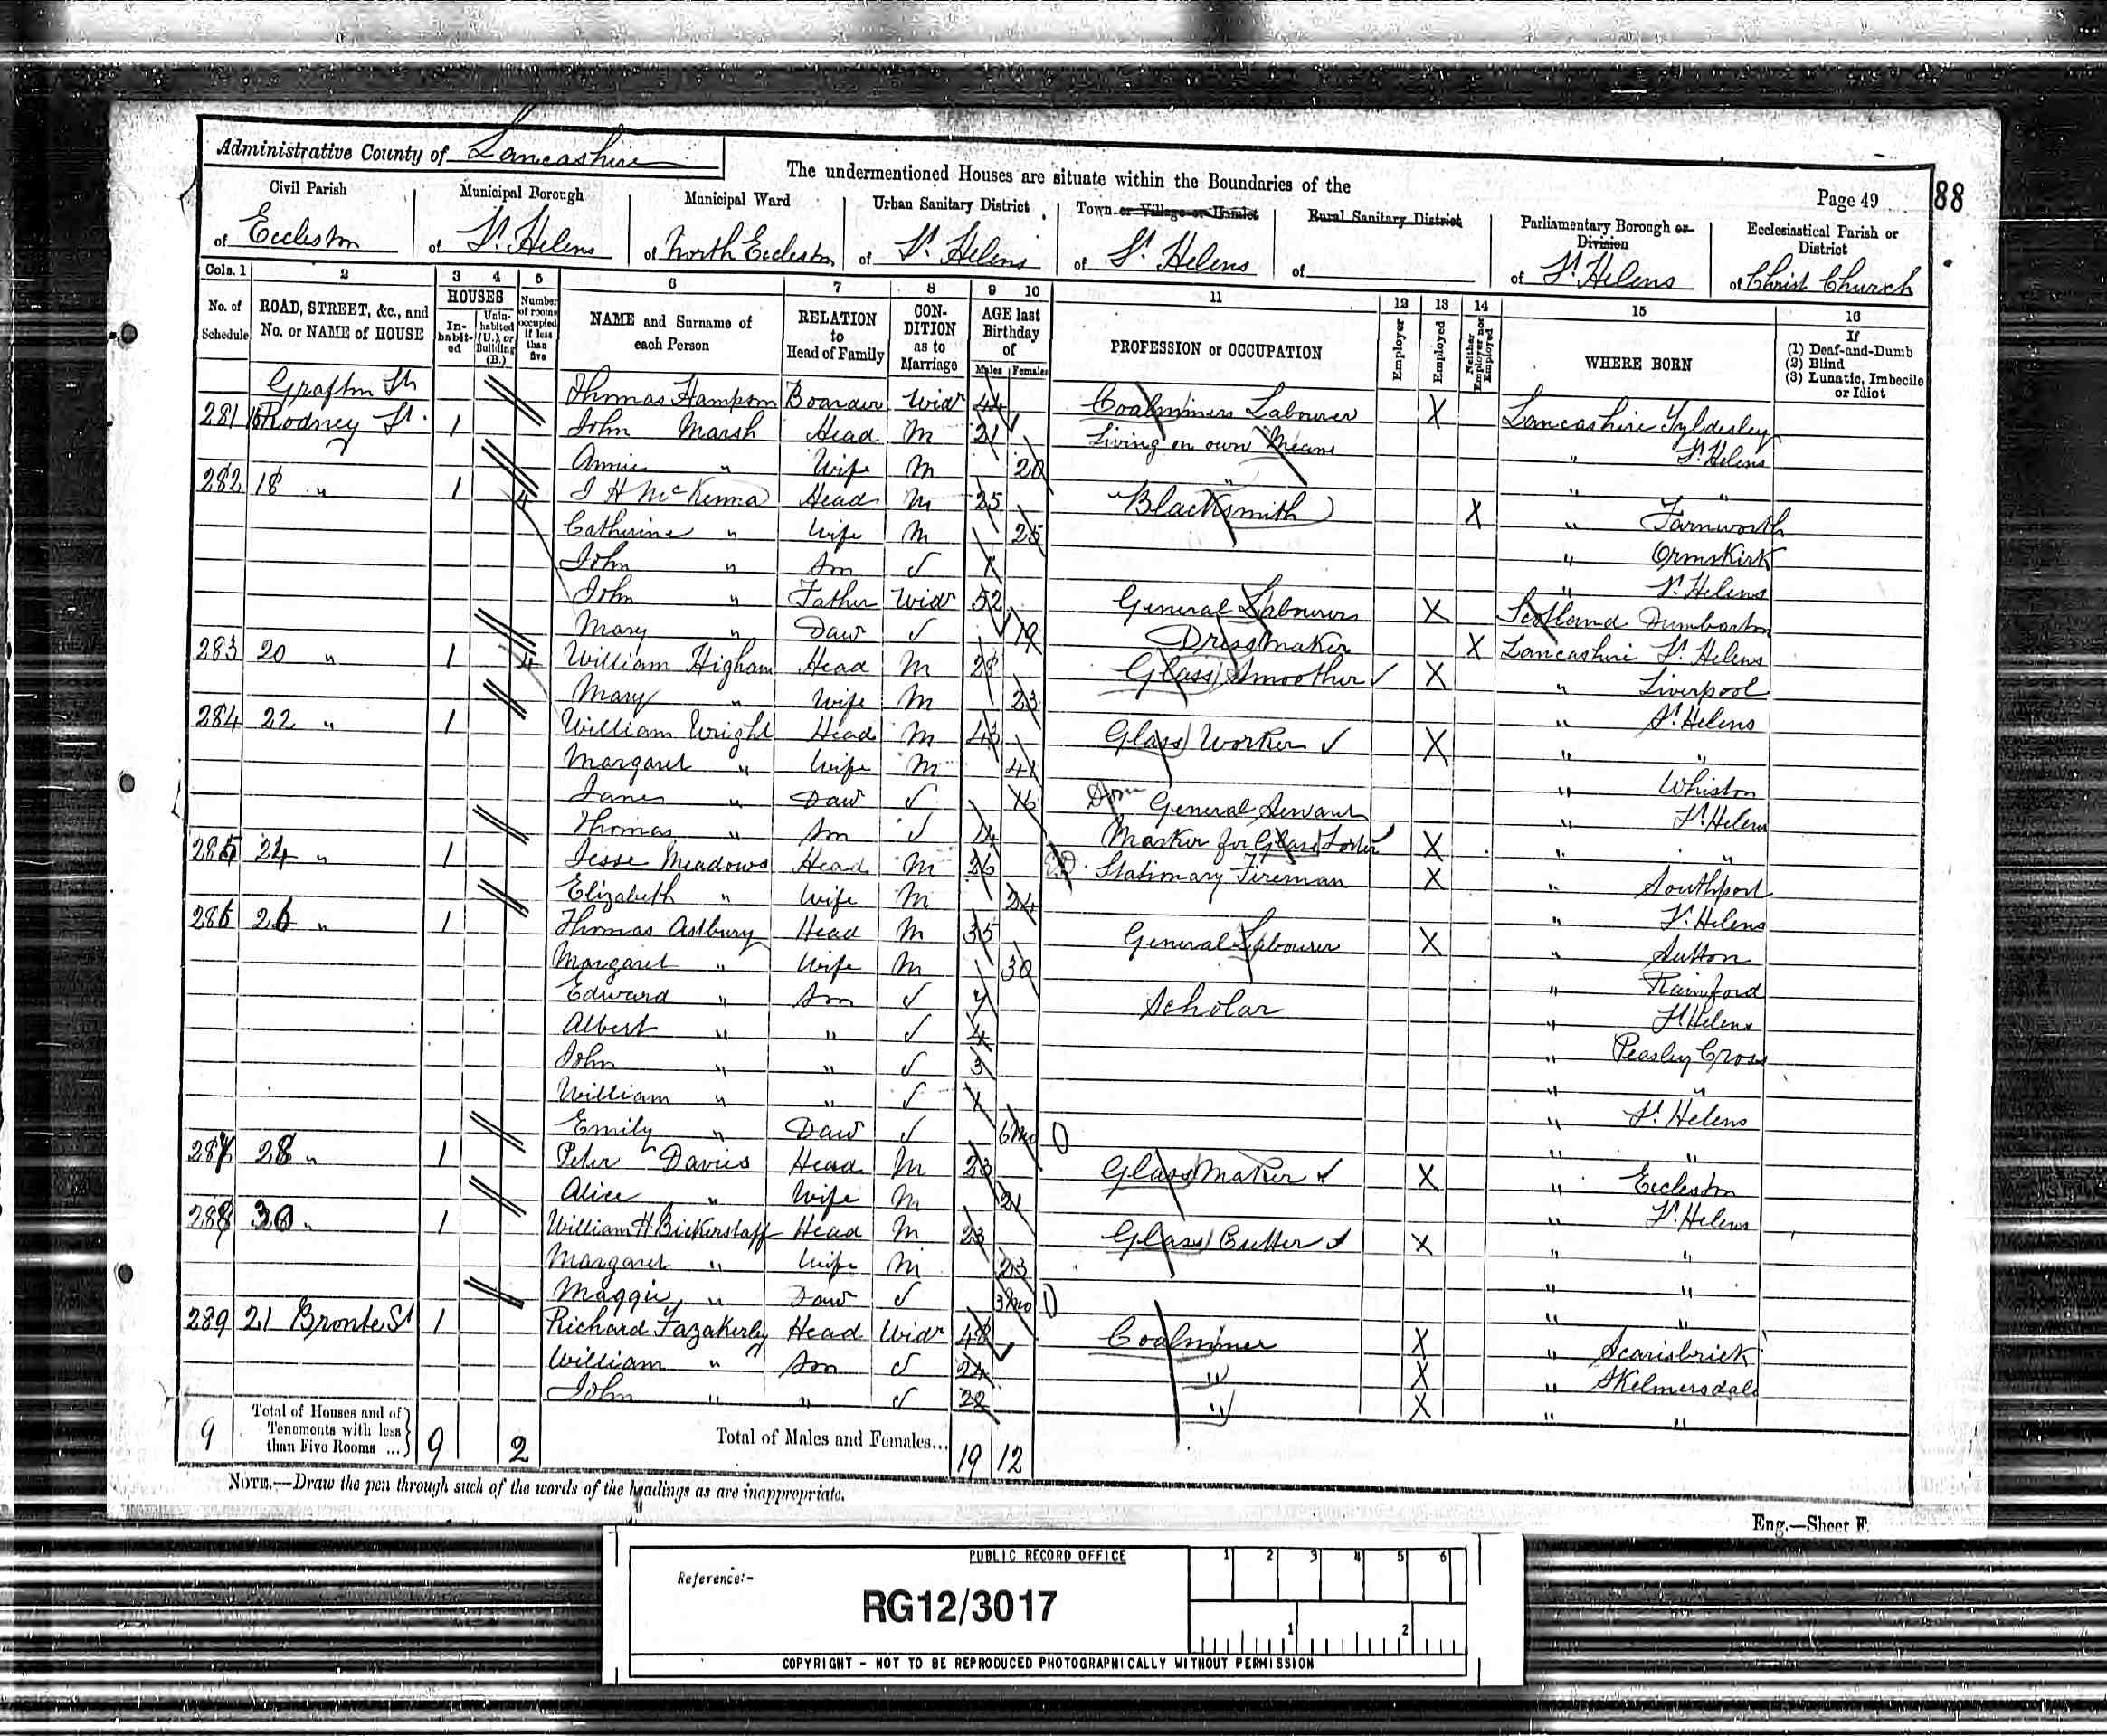 Administrative County of Lancashire
The undermentioned Houses are situate within the Boundaries of the
Page 49
88
Civil Parish
of Eccleston
Municipal Borough
of St. Helens
Municipal Ward
of North Eccleston
Urban Sanitary District
of St. Helens
Town or Village or Hamlet
of St. Helens
Rural Sanitary District
of
Parliamentary Borough or Division
of St. Helens
Ecclesiastical Parish or District
of Christ Church
Cols. 1 2 3 4 5 6 7 8 9 10 11 12 13 14 15 16
No. of Schedule
ROAD, STREET, &c., and No. or NAME of HOUSE
HOUSES
In-habit-ed
Unin-habited (U.), or Building (B.)
Number of rooms occupied if less than five
NAME and Surname of each Person
RELATION to Head of Family
CON-DITION as to Marriage
AGE last Birthday of
Males Females
PROFESSION or OCCUPATION
Employer
Employed
Neither Employer nor Employed
WHERE BORN
If (1) Deaf-and-Dumb (2) Blind (3) Lunatic, Imbecile or Idiot
Grafton St Thomas Hampson Boarder Widr 44 Coalminers Labourer X Lancashire Tyldesley
281 16 Rodney St. 1 John Marsh Head M 21 Living on own Means " St. Helens
Annie " Wife M 20 " " "
282 18 " 1 4 J H McKenna Head M 25 Blacksmith X " Farnworth
Catherine " Wife M 25 " Ormskirk
John " Son " St. Helens
John " Father Widr 52 General Labourers X Scotland Dumbarton
Mary " Daur 19 Dressmaker X Lancashire St. Helens
283 20 " 1 4 William Higham Head M 28 Glass Smoother X " Liverpool
Mary " Wife M 23 " St. Helens
284 22 " 1 William Wright Head M 43 Glass Worker X " "
Margaret " Wife M 41 " Whiston
Janes " Daur 16 Dom General Servant " St. Helens
Thomas " Son 14 Marker for Glass X " "
285 24 " 1 Jesse Meadows Head M 26 Stationary Fireman X " Southport
Elizabeth " Wife M 24 " St. Helens
286 26 " 1 Thomas Astbury Head M 35 General Labourer X " Sutton
Margaret " Wife M 30 " Rainford
Edward " Son 7 Scholar " St. Helens
Albert " " 4 " Peasley Cross
John " " 3 " "
William " " " St. Helens
Emily " Daur 6 mo " "
287 28 " 1 Peter Davies Head M 23 Glass Maker X " Eccleston
Alice " Wife M 21 " St. Helens
288 30 " 1 William H Bickerstaff Head M 23 Glass Cutter X " "
Margaret " Wife M 23 " "
Maggie " Daur 3 mo " "
289 21 Bronte St 1 Richard Fazakerley Head Widr 48 Coalminer X " Scarisbrick
William " Son 24 " X " Skelmersdale
John " " 22 " X " "
9 Total of Houses and of Tenements with less than Five Rooms ... 9 2 Total of Males and Females... 19 12
NOTE.—Draw the pen through such of the words of the headings as are inappropriate.
Eng.—Sheet F.
PUBLIC RECORD OFFICE
Reference:-
RG12/3017
1 2 3 4 5 6
1 2
COPYRIGHT - NOT TO BE REPRODUCED PHOTOGRAPHICALLY WITHOUT PERMISSION